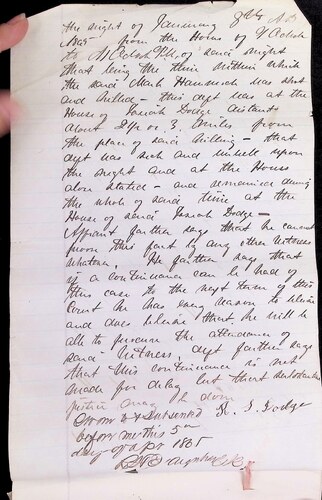 the night of January 8th A D
1885 from the Hours of 7 O clock
to 11 O clock P. M. of said night
that being the time within which
the said Mark was shot
and killed - this deft was at the
House of Josiah Dodge distant
about 2½ or 3 miles from
the place of said killing - that
deft was sick and unwell upon
the night and at the House
above stated - and remained during
the whole of said time at the
House of said Josiah Dodge -
Affiant further says that he cannot
prove this fact by any other witness
whatever. He further says that
if a continuance can be had of
this case to the next term of this
Court he has every reason to believe
and does believe that he will be
able to procure the attendance of
said witness, deft further says
that this continuance is not
made for delay but that substantial
justice may be done
Sworn to & Subscribed Dodge
before me this 5th
day of Apr 1885